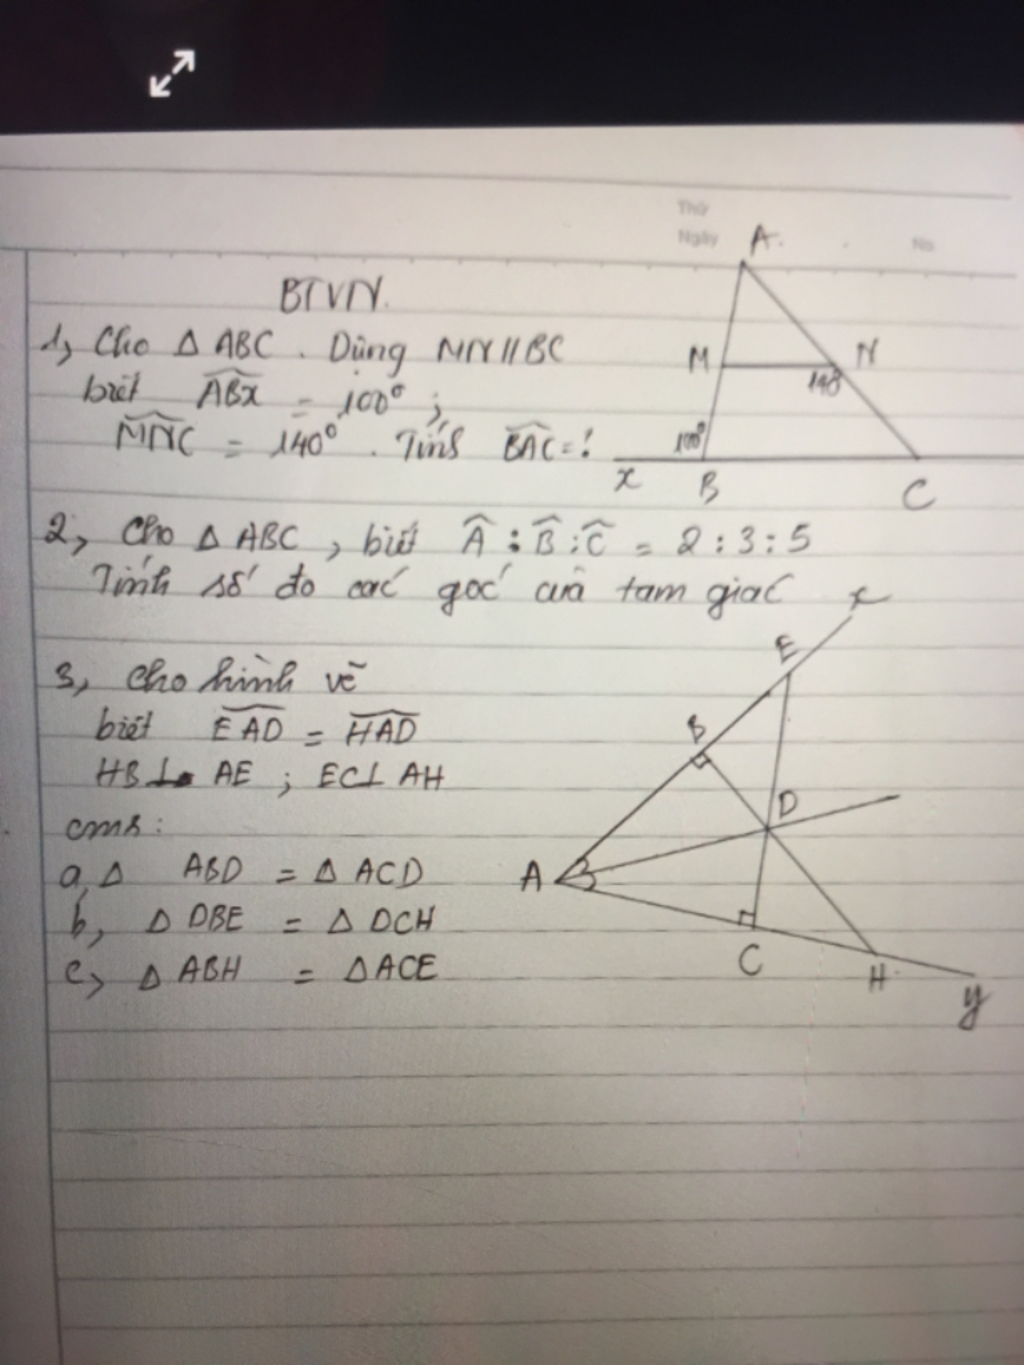 Thứ
Ngày
No
BTVN.
1, Cho Δ ABC. Dựng MN//BC
biết ABx = 100° ;
MNC = 140°. Tính BAC = ?
A
M
N
140
100°
x
B
C
2, Cho Δ ABC, biết Â : B̂ : Ĉ = 2 : 3 : 5
Tính số đo các góc của tam giác
3, Cho hình vẽ
biết EAD = HAD
HB ⊥ AE ; EC ⊥ AH
cmr :
a, Δ ABD = Δ ACD
b, Δ DBE = Δ DCH
c, Δ ABH = Δ ACE
x
E
B
D
A
C
H
y